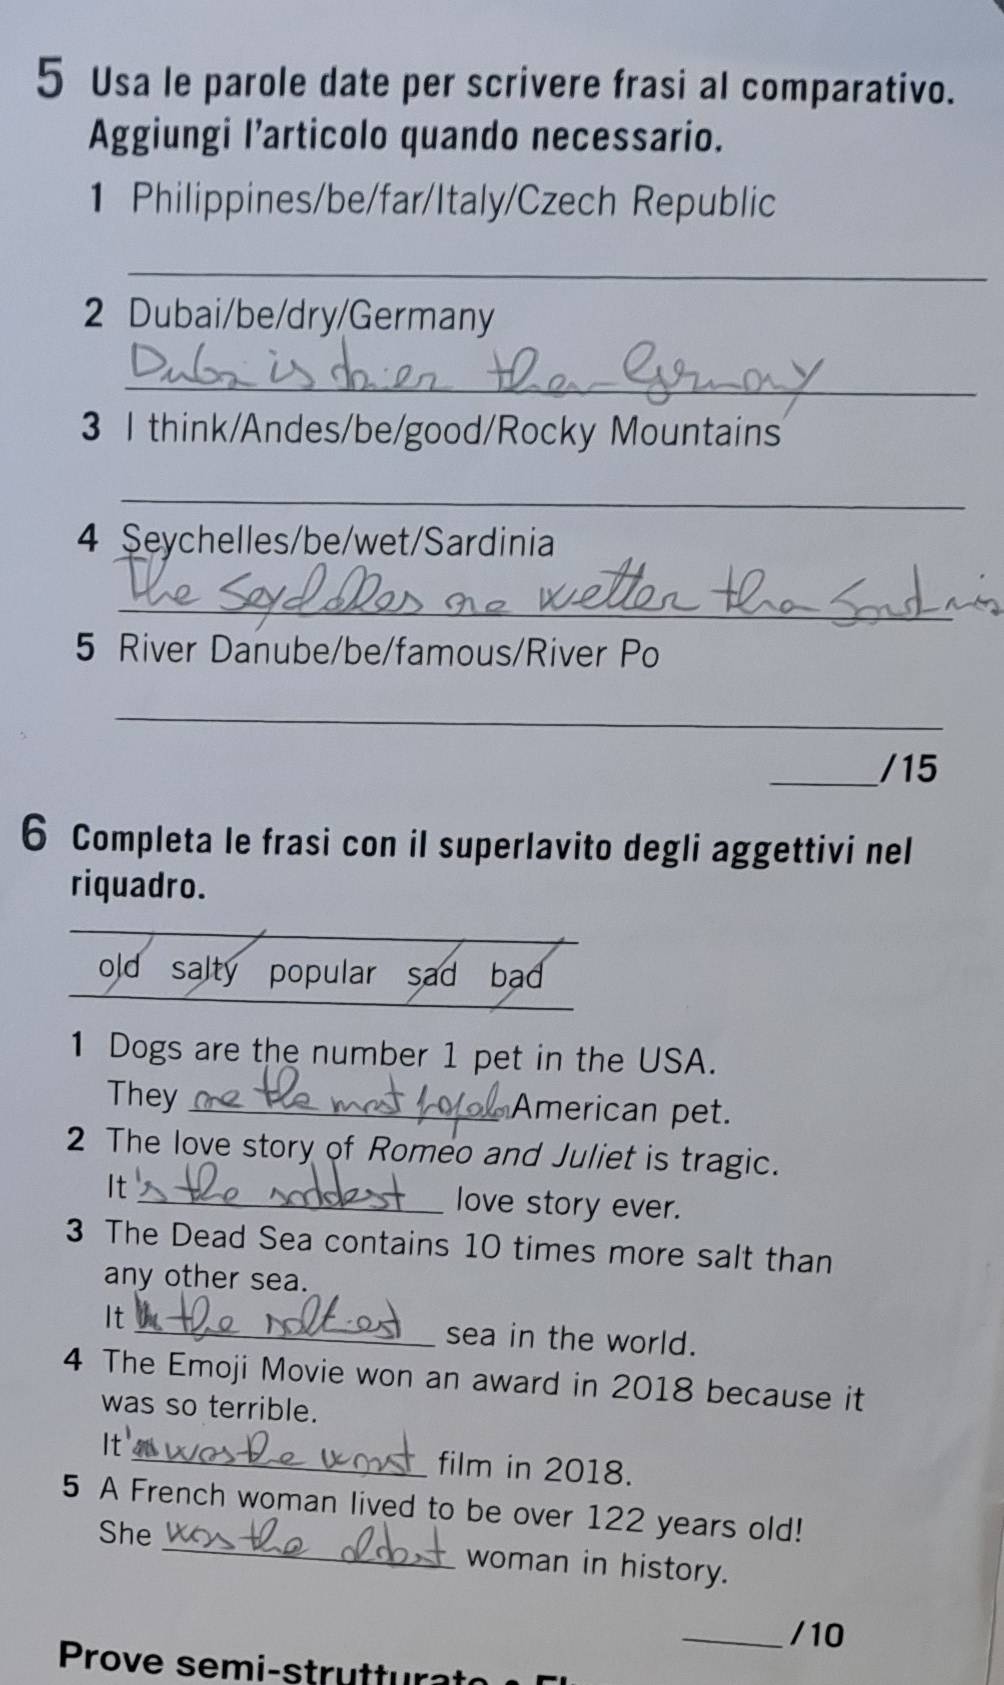 5 Usa le parole date per scrivere frasi al comparativo.
Aggiungi l'articolo quando necessario.
1 Philippines/be/far/Italy/Czech Republic
2 Dubai/be/dry/Germany
is drier than Germany
3 I think/Andes/be/good/Rocky Mountains
4 Seychelles/be/wet/Sardinia
the are wetter than
5 River Danube/be/famous/River Po
/15
6 Completa le frasi con il superlavito degli aggettivi nel
riquadro.
old salty popular sad bad
1 Dogs are the number 1 pet in the USA.
They are the most American pet.
2 The love story of Romeo and Juliet is tragic.
It's the saddest love story ever.
3 The Dead Sea contains 10 times more salt than
any other sea.
It the saltiest sea in the world.
4 The Emoji Movie won an award in 2018 because it
was so terrible.
It' was the worst film in 2018.
5 A French woman lived to be over 122 years old!
She was the oldest woman in history.
/10
Prove semi-strutturate •